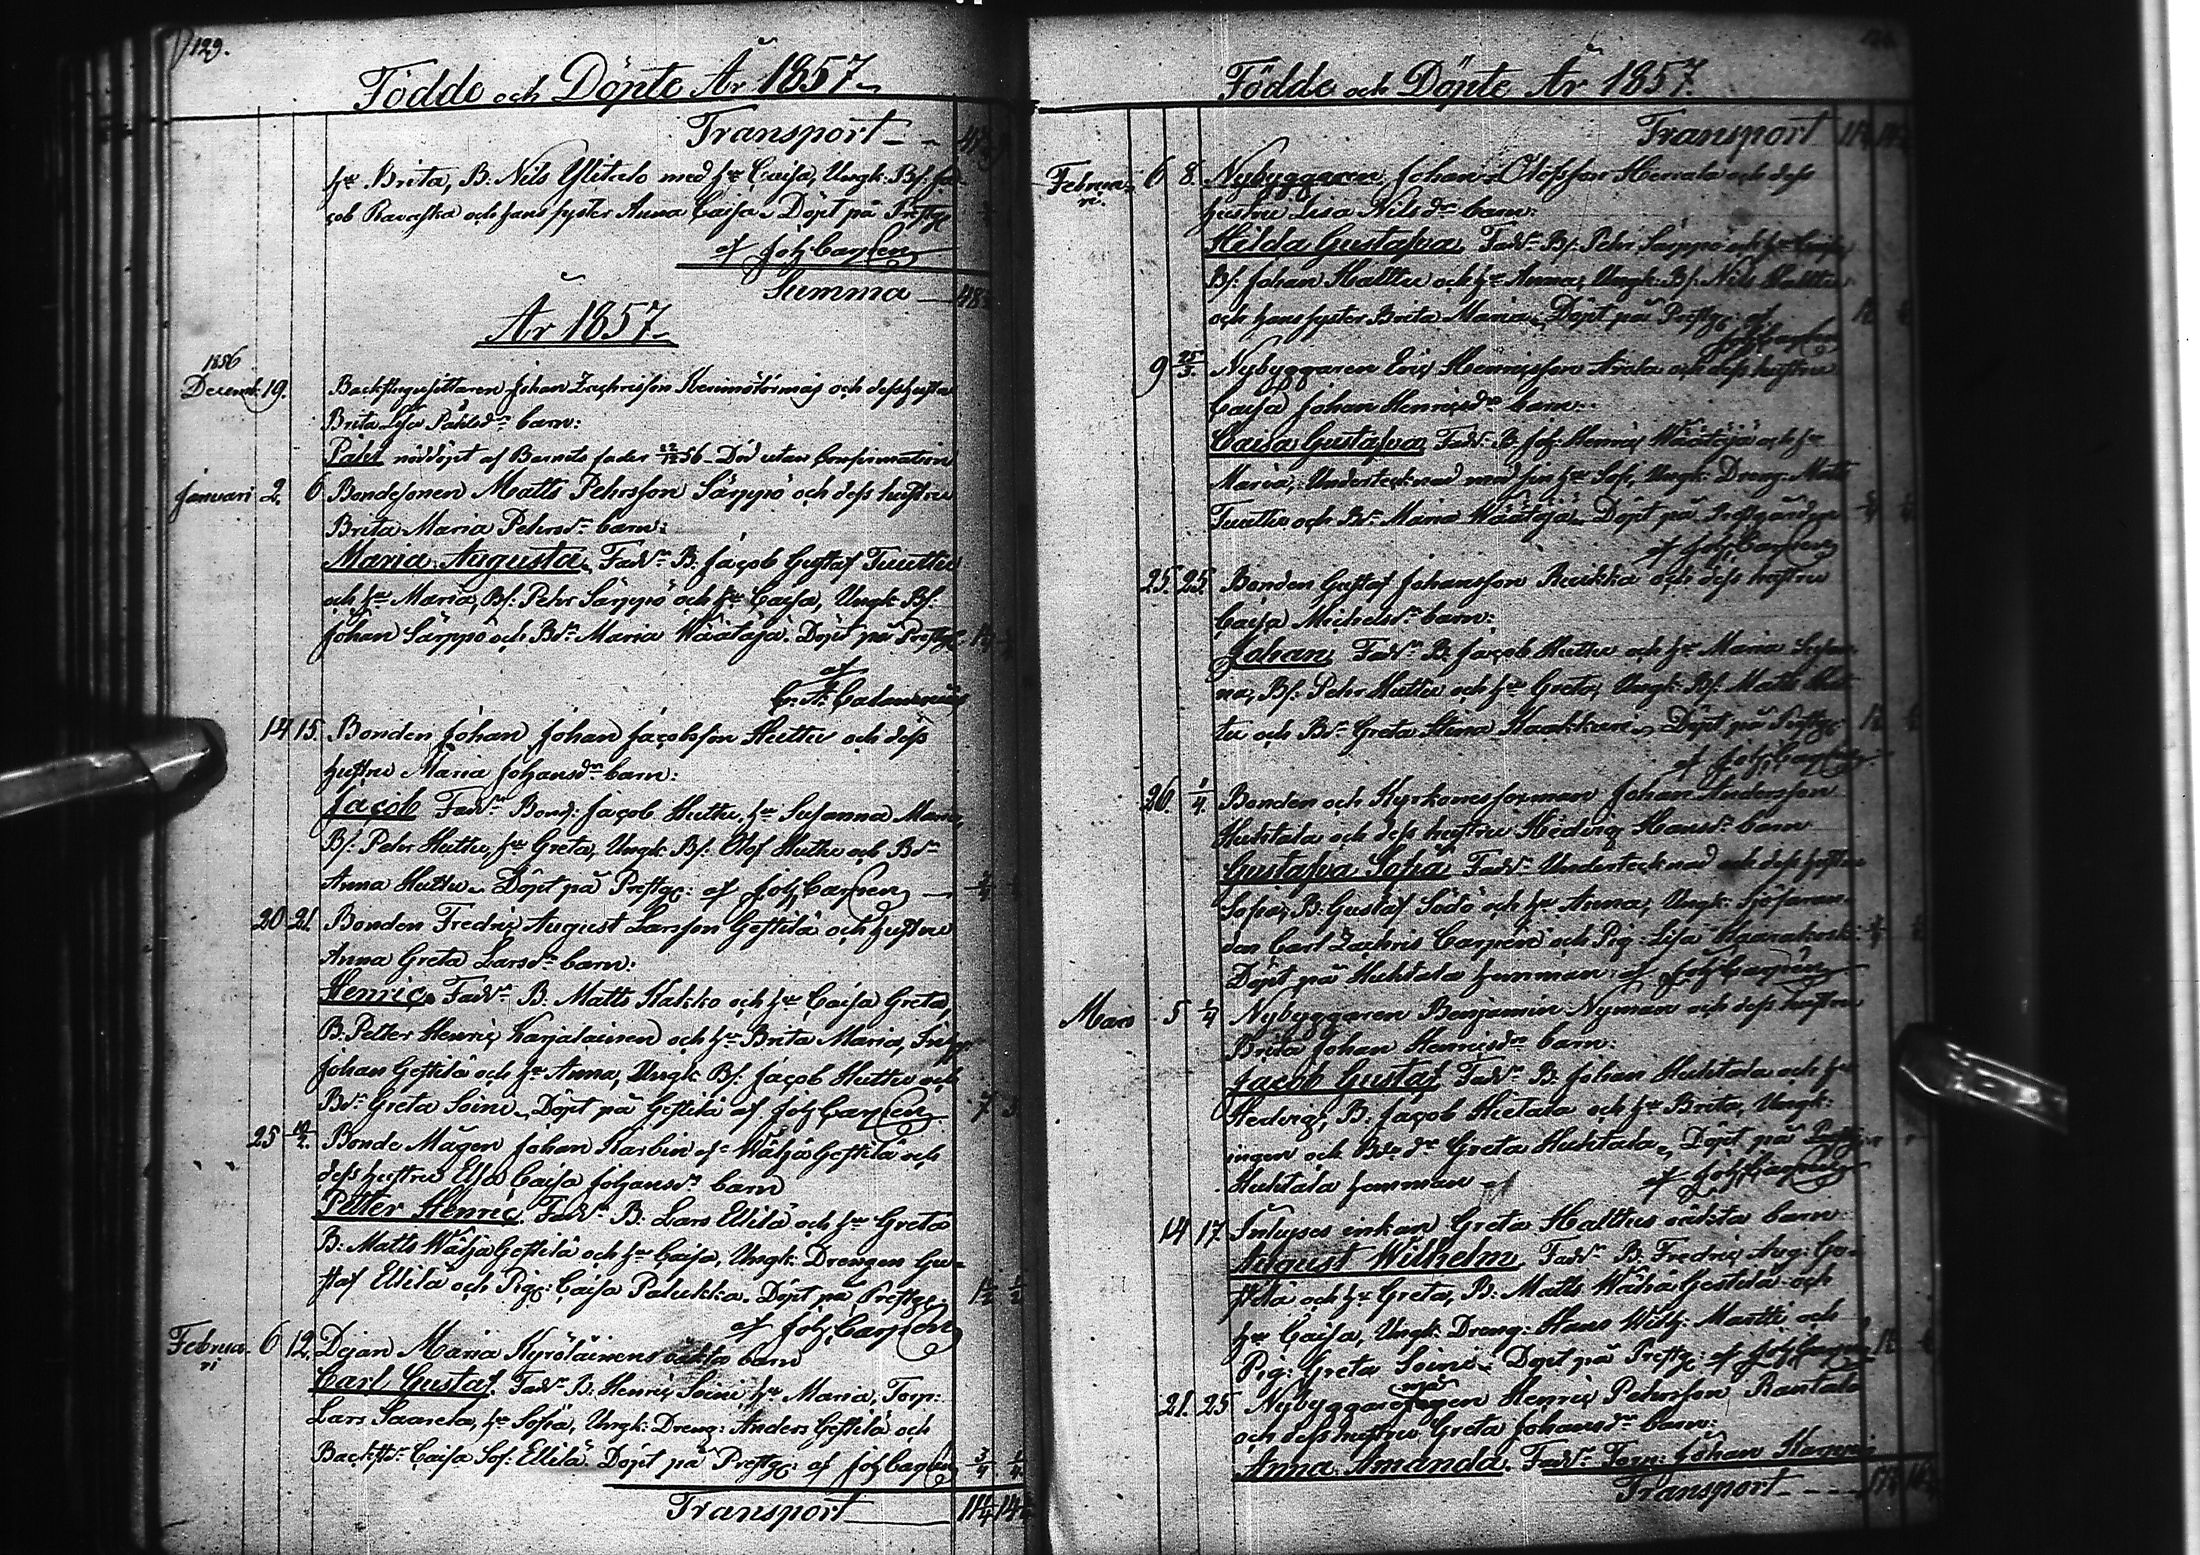 129.
Födde och Döpte År 1857
Transport
hr Brita, B. Nils Ylitalo med hr Caisa, Ungk: Bs: Ja-
cob Ravaska och hans syster Anna Caisa. Döpt på Prestg:
af Joh Carpén
Summa 48
År 1857
1856
Decemb. 19. Backstugusittaren Johan Zachrisson och dess hustru
Brita Lisa Påhlsdr barn:
Påhl nöddöpt af Barnets fader 56. Död utan Confirmation
Januari 2. 6 Bondesonen Matts Pehrsson Särppö och dess hustru
Brita Maria Pehrsdr barn:
Maria Augusta. Faddr B. Jacob Gustaf Tuuttu
och hr Maria, Bs: Pehr Särppö och hr Caisa, Ungk Bs:
Johan Särppö och Bdr Maria Wäätäjä. Döpt på Prestg:
af
C. A. Calamnius
14 15 Bonden Johan Johan Jacobsson Huttu och dess
hustru Maria Johansdr barn:
Jacob Faddr Bond: Jacob Huttu, hr Susanna Maria,
Bs: Pehr Huttu, hr Greta, Ungk. Bs: Olof Huttu och Bdr
Anna Huttu. Döpt på Prestg: af Joh Carpén
20 21. Bonden Fredric August Larsson Gestilä och hustru
Anna Greta Larsdr barn:
Henric. Faddr B. Matts Kakko och hr Caisa Greta,
B. Petter Henric Karjalainen och hr Brita Maria,
Johan Gestilä och hr Anna, Ungk Bs: Jacob Huttu och
Bdr Greta Soini. Döpt på Gestilä af Joh Carpén
25 Bonde Mågen Johan Karbin af Wäljä Gestilä och
dess hustru Elsa Caisa Johansdr barn
Petter Henric. Faddr B. Lars Ellilä och hr Greta
B. Matts Wäljä Gestilä och hr Caisa, Ungk. Drengen Gu-
staf Ellilä och Pig: Caisa Palukka. Döpt på Prestg: 1/2 1/2
af Joh. Carpén
Februa- 6 12. Dejan Maria Kyröläinens oäkta barn
ri
Carl Gustaf. Faddr B. Henric Soini, hr Maria, Torp:
Lars Saarela, hr Sofia, Ungk: Dreng: Anders Gestilä och
Backstdr Caisa Sof: Ellilä. Döpt på Prestg: af Joh Carpén 3/4 1/4
Transport
Födde och Döpte År 1857.
Transport
Februa- 6 8. Nybyggaren Johan Olofsson Hercala och dess
ri.
hustru Lisa Nilsdr barn:
Hilda Gustafva Faddr Bs. Pehr Särppö och hr Caisa,
Bs: Johan Halttu och hr Anna, Ungk. Bs: Nils Halttu
och hans syster Brita Maria. Döpt på Prestg: af
Joh Carpén
9 25/3 Nybyggaren Eric Henricsson Avala och dess hustru
Caisa Johan Henricsdr barn:
Caisa Gustafva Faddr B. Joh: Henric Wäätäjä och hr
Maria, Undertecknad med sin hr Sofi, Ungk: Dreng. Matts
Tuuttu och Bdr Maria Wäätäjä. Döpt på Prestgården
af Joh. Carpén
25. 25. Bonden Gustaf Johansson Reinikka och dess hustru
Caisa Michelsdr barn:
Johan. Faddr B. Jacob Huttu och hr Maria
na, Bs: Pehr Huttu och hr Greta, Ungk. Bs: Matts Hut-
tu och Bdr Greta Stina. Döpt på Prestg:
af Joh. Carpén
26. 1/4 Bonden och Kyrkoväsforman Johan Andersson
Huhtala och dess hustru Hedvig Hansdr barn
Gustafva Sofia Faddr Undertecknad och dess hustru
Sofia, B. Gustaf Södö och hr Anna, Ungk. Sjöfaran-
den Carl Zachris Carpén och Pig: Lisa
Döpt på Huhtala hemman af Joh Carpén
Mars 5 1/4 Nybyggaren Benjamin Nyman och dess hustru
Brita Johan Henricsdr barn:
Jacob Gustaf Faddr B. Johan Huhtala och hr
Hedvig, B. Jacob Hietala och hr Brita, Ungk:
ingen och Bdr Greta Huhtala. Döpt på
Huhtala hemman af Joh Carpén
14 17 Inhyses enkan Greta Halttus oäkta barn
August Wilhelm Faddr B. Fredric Aug: Ge-
stilä och hr Greta, B. Matts Wälja Gestilä och
hr Caisa, Ungk: Dreng: Hans Wilh: Martti och
Pig: Greta Soini. Döpt på Prestg: af Joh Carpén
21. 25 Nybyggaremågen Henric Pehrsson Rantala
och dess hustru Greta Johansdr barn:
Anna Amanda. Faddr Torp: Johan
Transport